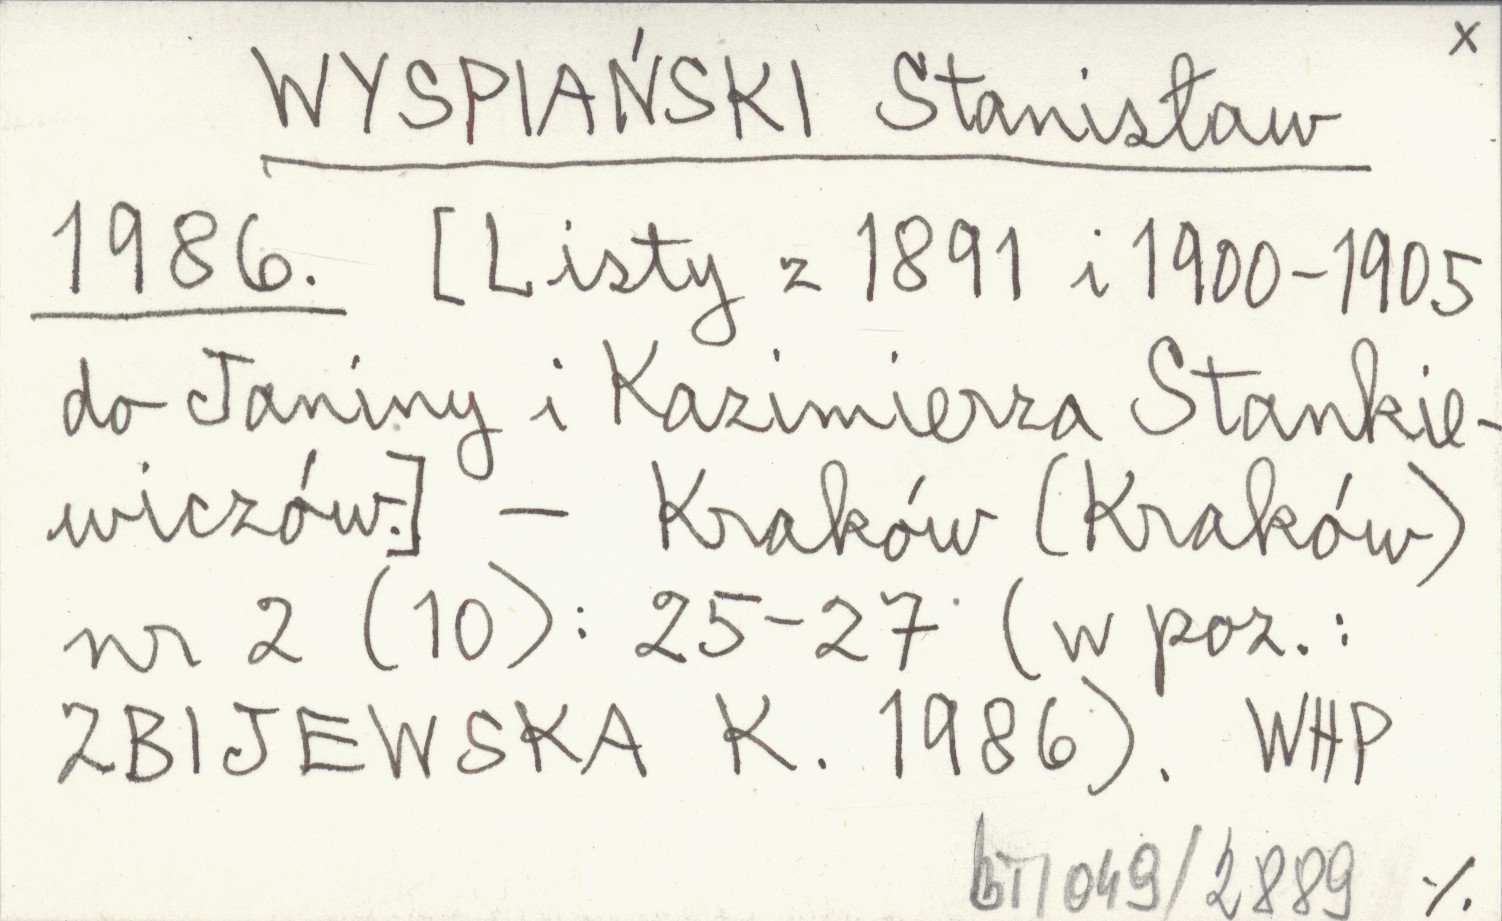 x
WYSPIAŃSKI Stanisław
1986. [Listy z 1891 i 1900-1905
do Janiny i Kazimierza Stankie-
wiczów.] - Kraków (Kraków)
nr 2 (10): 25-27 (w poz.:
ZBIJEWSKA K. 1986). WHP
049/2889 ·/.